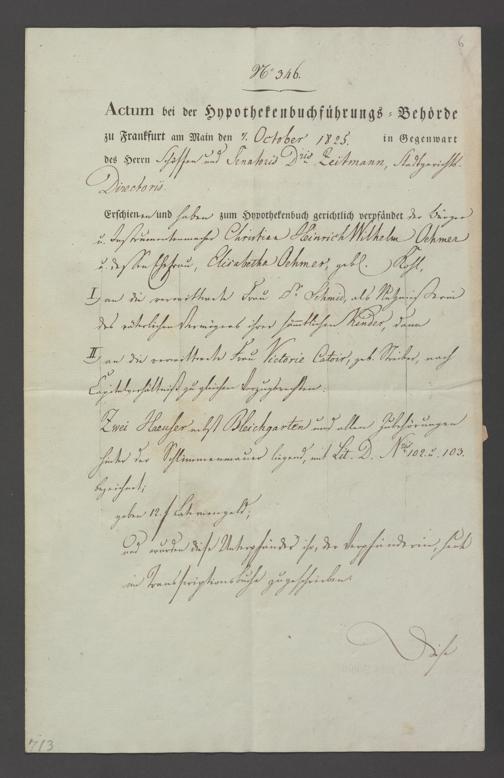 6
No 346.
Actum bei der Hypothekenbuchführungs-Behörde
zu Frankfurt am Main den 7. October 1825. in Gegenwart
des Herrn Schöffen und Senatoris Dris Zeitmann, Stadtgerichts-
Directoris.
Erschienen und haben zum Hypothekenbuch gerichtlich verpfändet der Bürger
u. Instrumentenmacher Christian Heinrich Wilhelm Oehmer
u. dessen Ehefrau, Elisabetha Oehmer, geb. Kohl,
I an die verwittwete Frau Dr Schmid, als Nutznießerin
des väterlichen Vermögens ihrer sämmtlichen Kinder, dann
II an die verwittwete Frau Victorie Catoir, geb. Steiber, nach
Capitalverhältniß zu gleichen Vorzugsrechten:
Zwei Haeuser nebst Bleichgarten und allen Zubehörungen
hinter der Schlimmenmauer liegend, mit Lit. D. No 102. u. 103.
bezeichnet;
geben 12 f Laternengeld;
und wurden diese Unterpfänder ihr, der Verpfänderin, heute
im Transcriptionsbuche zugeschrieben.
Diese
713